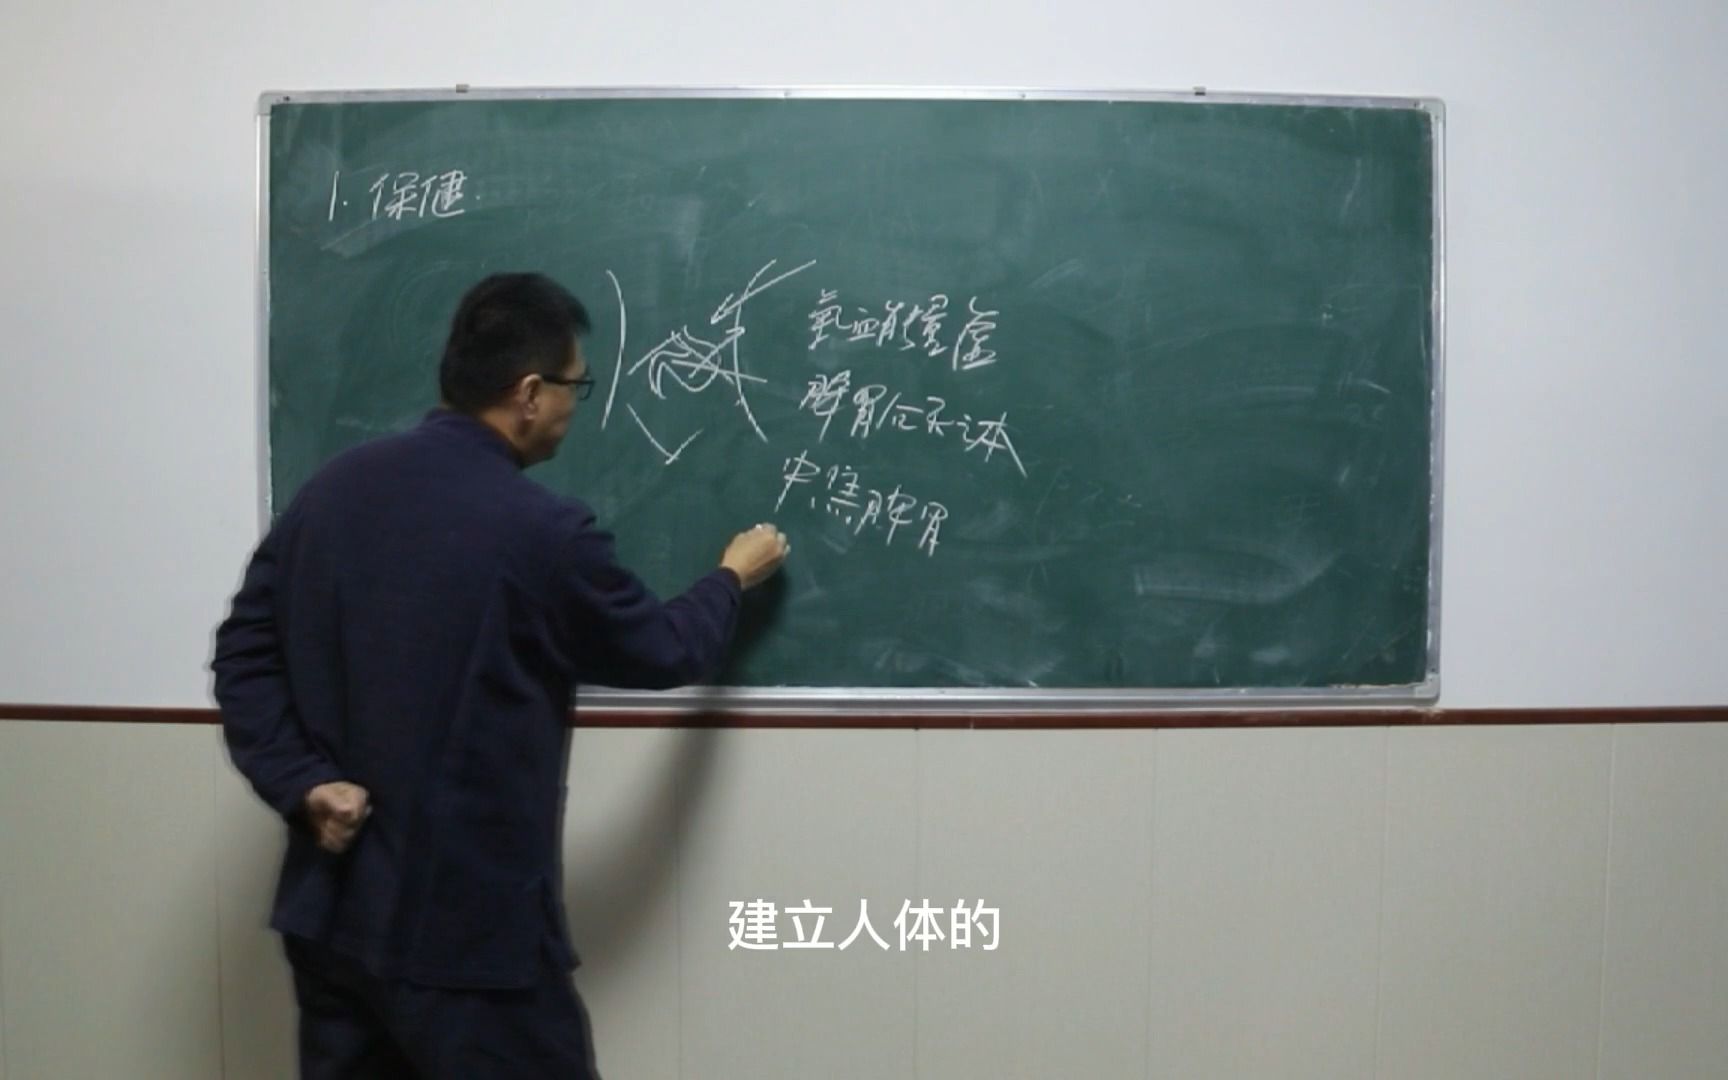 1. 保健.
氧血能量虚
脾胃后天之本
中焦脾胃
建立人体的